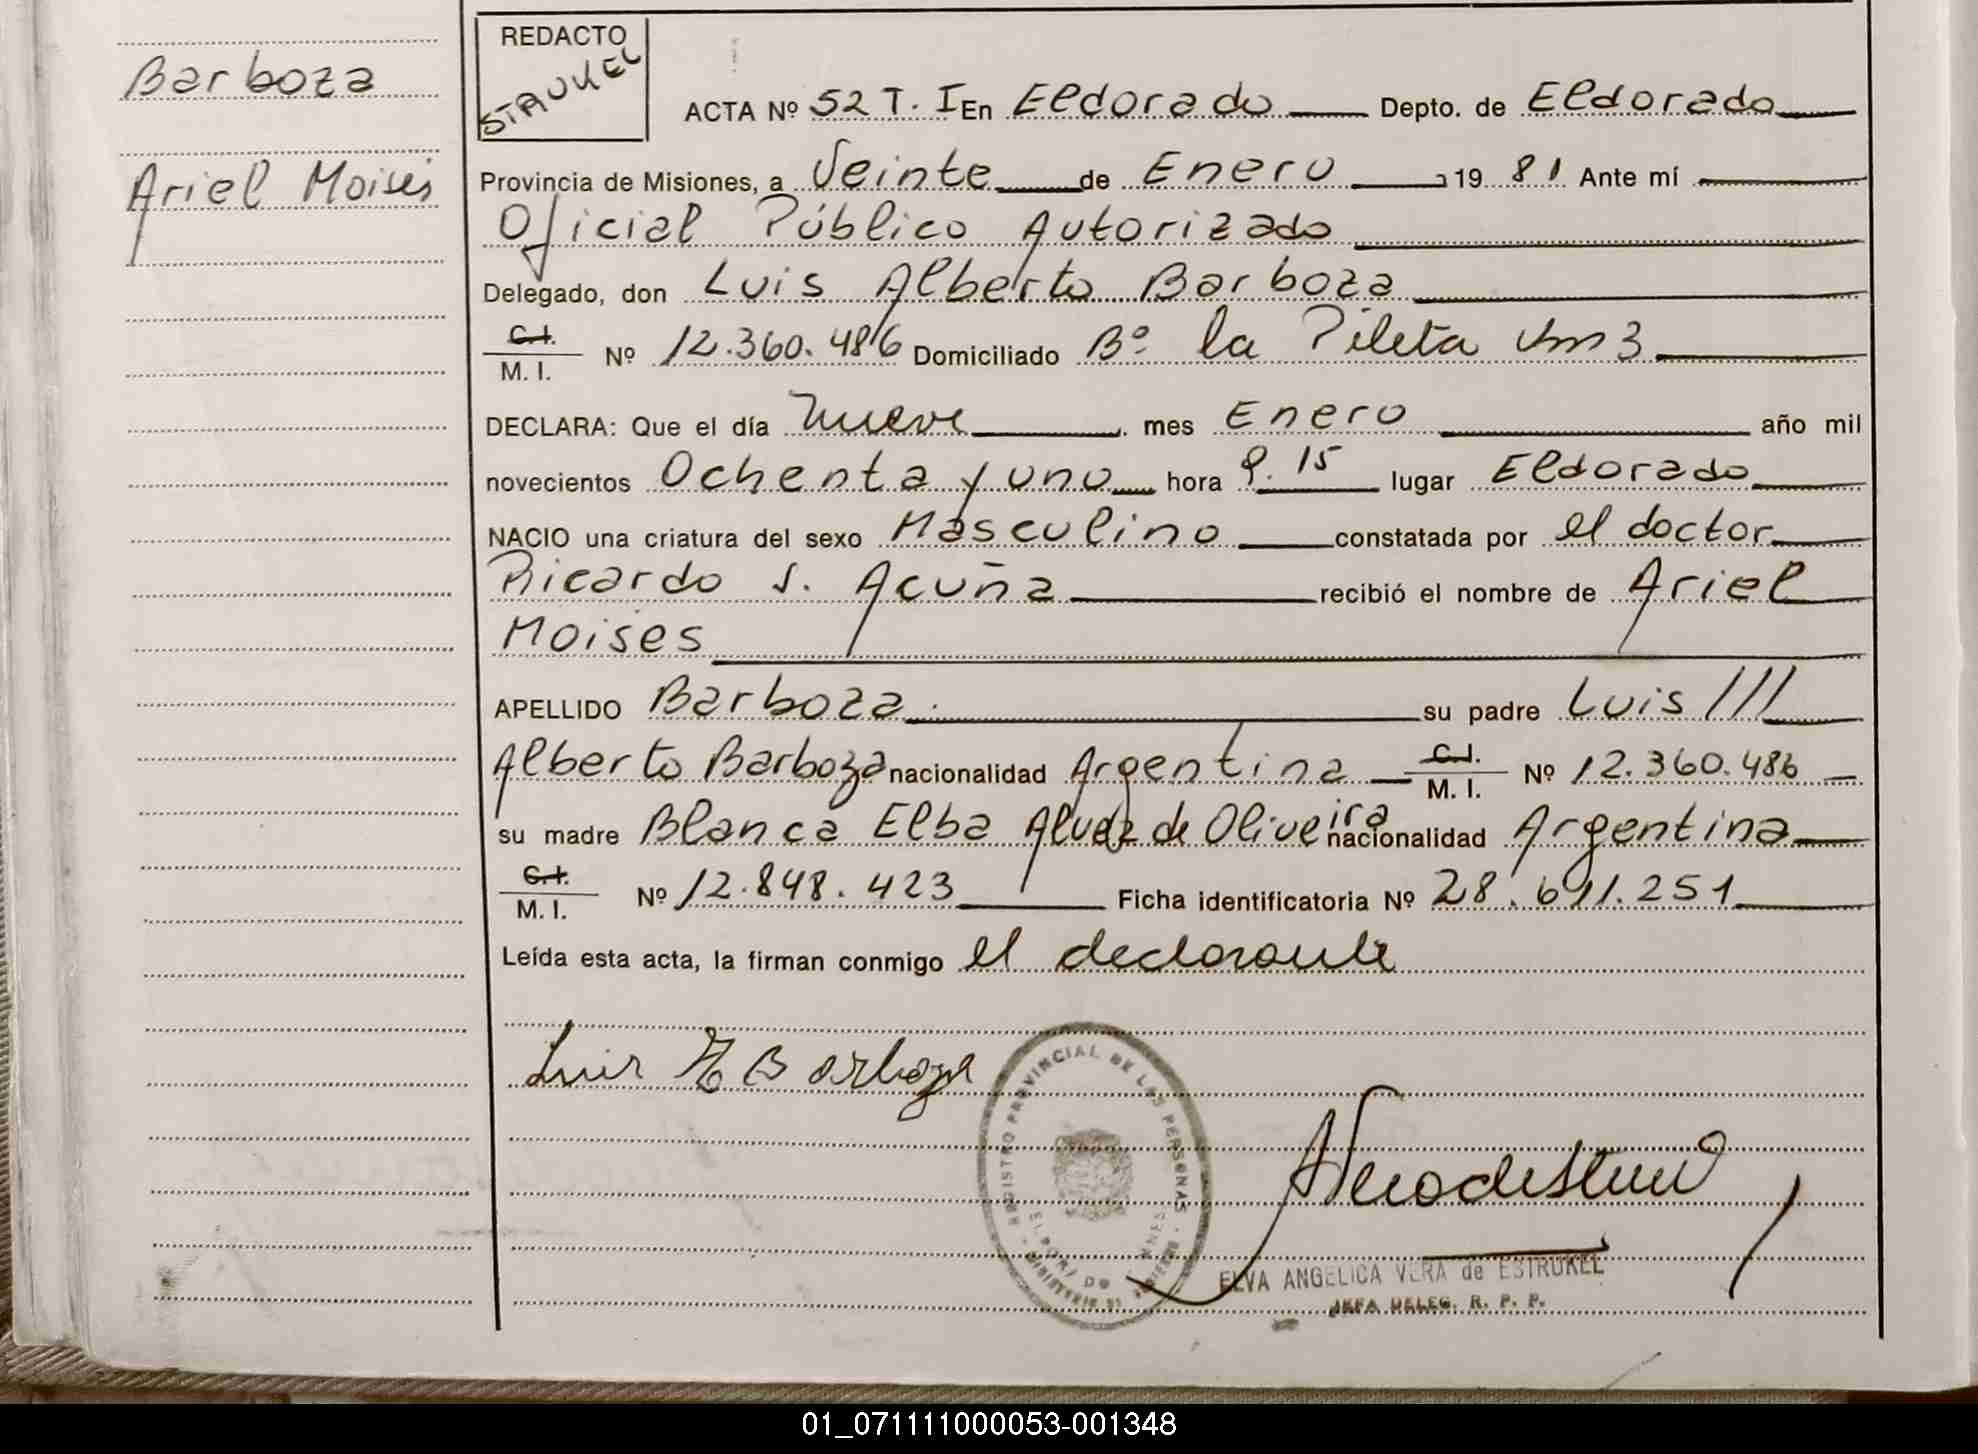 Barboza
Ariel Moisés
REDACTO
STRUKEL
ACTA Nº 52 T. I En Eldorado Depto. de Eldorado
Provincia de Misiones, a Veinte de Enero 19 81 Ante mí
Oficial Público Autorizado
Delegado, don Luis Alberto Barboza
C.I.
M. I. Nº 12.360.486 Domiciliado Bº la Pileta Km 3
DECLARA: Que el día nueve mes Enero año mil
novecientos Ochenta y uno hora 9.15 lugar Eldorado
NACIO una criatura del sexo Masculino constatada por el doctor
Ricardo S. Acuña recibió el nombre de Ariel
Moises
APELLIDO Barboza su padre Luis ///
Alberto Barboza nacionalidad Argentina C.I. M. I. Nº 12.360.486
su madre Blanca Elba Alvez de Oliveira nacionalidad Argentina
C.I.
M. I. Nº 12.848.423 Ficha identificatoria Nº 28.691.251
Leída esta acta, la firman conmigo el declarante
Luis A Barboza
REGISTRO PROVINCIAL DE LAS PERSONAS
ELVA ANGELICA VERA de ESTRUKEL
JEFA DELEG. R. P. P.
01_071111000053-001348